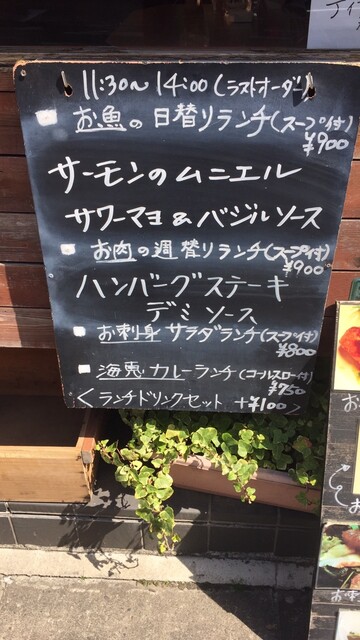 11:30〜14:00(ラストオーダー)
お魚の日替りランチ(スープ付)
¥900
サーモンのムニエル
サワーマヨ&バジルソース
お肉の週替りランチ(スープ付)
¥900
ハンバーグステーキ
デミソース
お刺身サラダランチ(スープ付)
¥800
海鬼カレーランチ(コールスロー付)
¥750
<ランチドリンクセット +¥100>
お刺